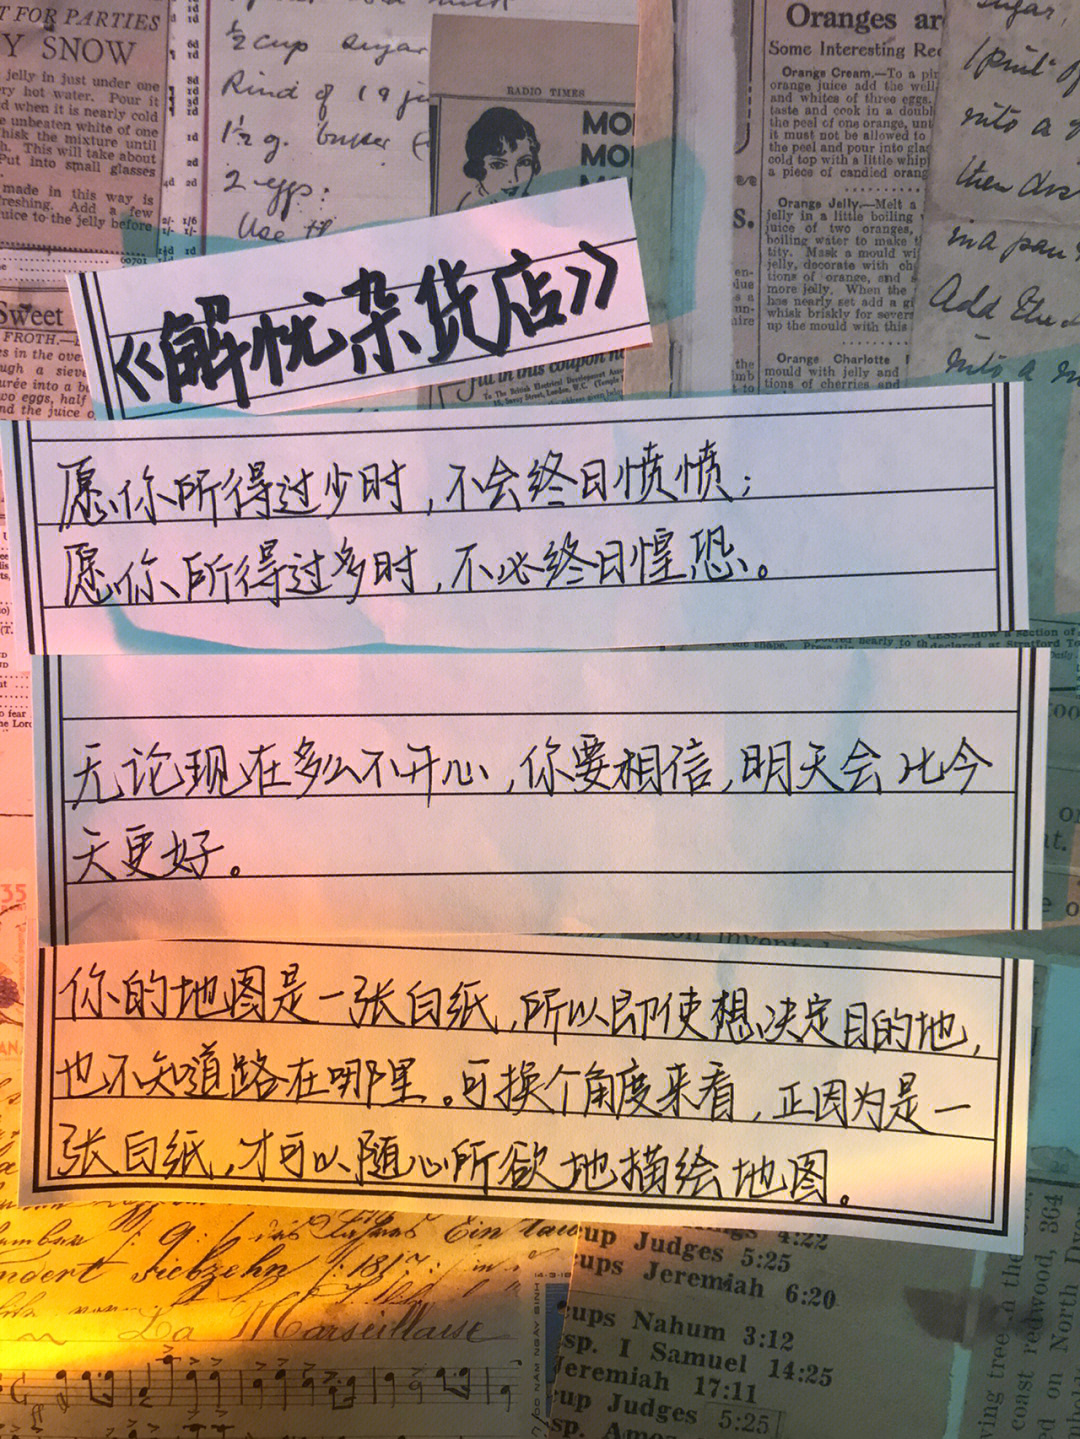 T FOR PARTIES
Y SNOW
jelly in just under one
ry hot water. Pour it
d when it is nearly cold
unbeaten white of one
hisk the mixture until
h. This will take about
Put into small glasses
made in this way is
freshing. Add a few
juice to the jelly before
½ cup sugar
Rind of 1
2 eggs:
Use
RADIO TIMES
MO
MO
Oranges ar
Some Interesting Re
Orange Cream.—To a pi
orange juice add the well
and whites of three eggs.
taste and cook in a doubl
the peel of one orange, unt
it must not be allowed to
the peel and pour into glas
cold top with a little whip
a piece of candied orang
Orange Jelly.—Melt a
jelly in a little boiling
juice of two oranges,
boiling water to make
tity. Mask a mould wi
jelly, decorate with ch
tions of orange, and
more jelly. When the
has nearly set add a gi
whisk briskly for sever
up the mould with this
Orange Charlotte
mould with jelly and
tions of cherries and
sugar,
1 pint of
into a
then
in a pan
Add the
into a
Sweet
FROTH.
《解忧杂货店》
in this coupon
愿你所得过少时,不会终日愤愤;
愿你所得过多时,不必终日惶恐。
无论现在多么不开心,你要相信,明天会比今
天更好。
你的地图是一张白纸,所以即使想决定目的地,
也不知道路在哪里。可换个角度来看,正因为是一
张白纸,才可以随心所欲地描绘地图。
La Marseillaise
4:22
cup Judges 5:25
cups Jeremiah 6:20
cups Nahum 3:12
sp. I Samuel 14:25
Jeremiah 17:11
cup Judges 5:25
ving tree in the
coast redwood, 364
d on North